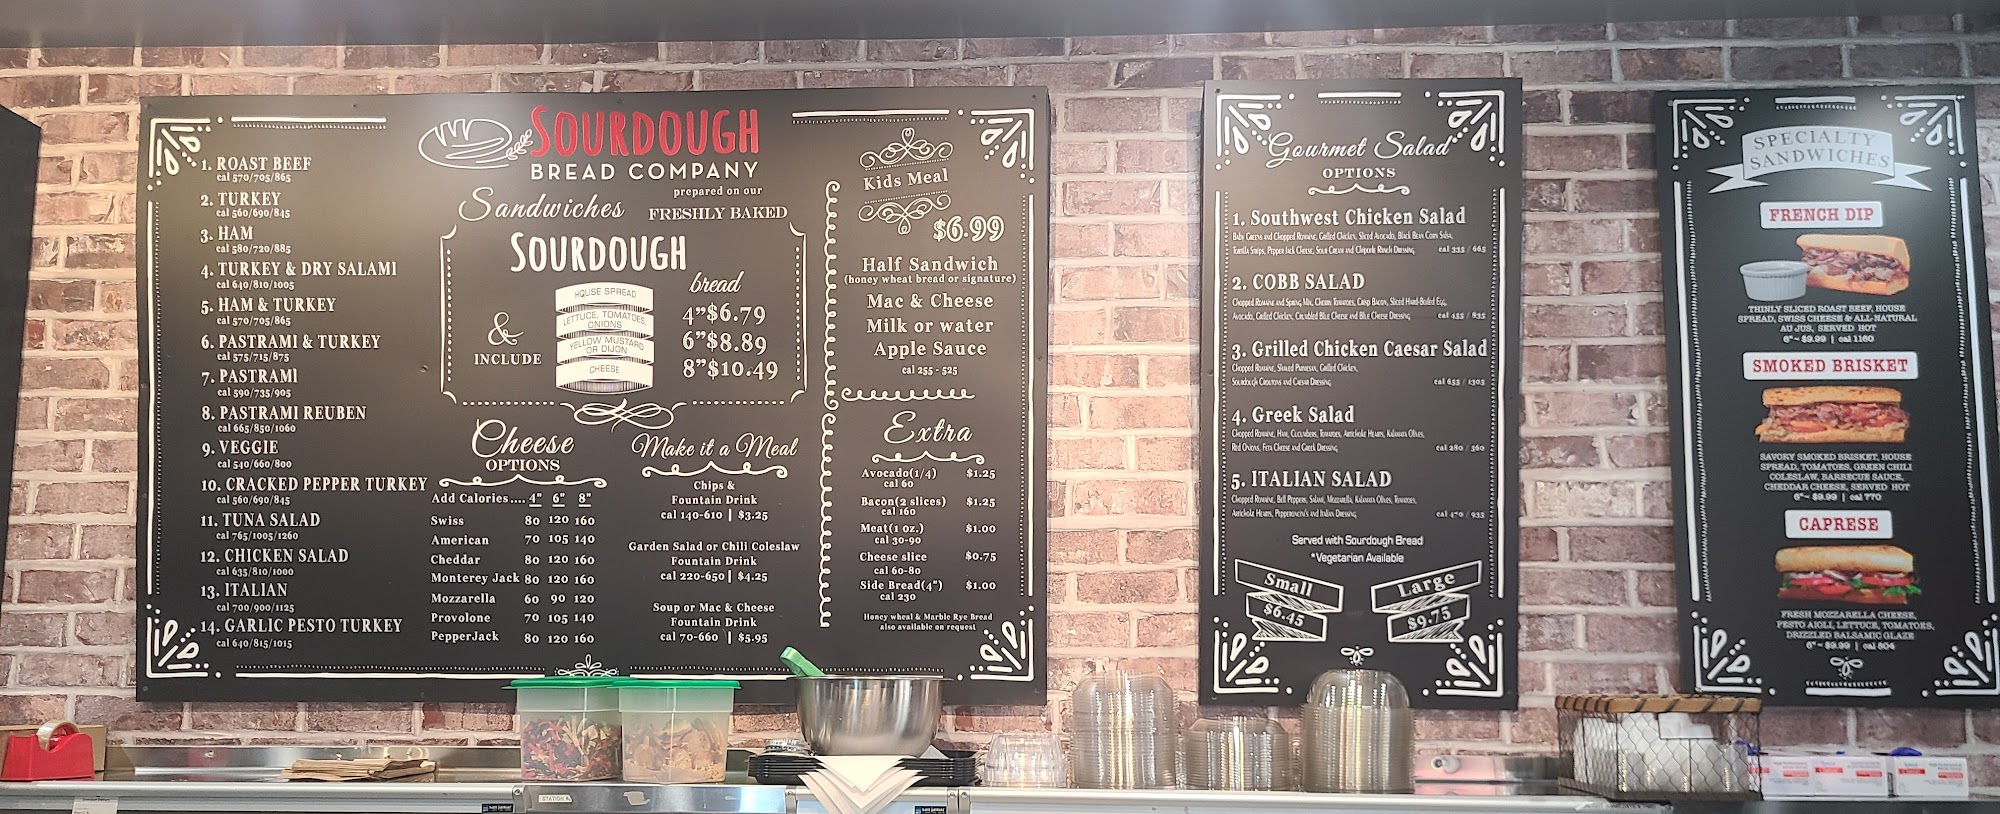 1. ROAST BEEF
cal 570/705/865
2. TURKEY
cal 560/690/845
3. HAM
cal 580/720/885
4. TURKEY & DRY SALAMI
cal 640/810/1005
5. HAM & TURKEY
cal 570/705/865
6. PASTRAMI & TURKEY
cal 575/715/875
7. PASTRAMI
cal 590/735/905
8. PASTRAMI REUBEN
cal 665/850/1060
9. VEGGIE
cal 540/660/800
10. CRACKED PEPPER TURKEY
cal 560/690/845
11. TUNA SALAD
cal 765/1005/1260
12. CHICKEN SALAD
cal 635/810/1000
13. ITALIAN
cal 700/900/1125
14. GARLIC PESTO TURKEY
cal 640/815/1015
SOURDOUGH
BREAD COMPANY
Sandwiches
prepared on our
FRESHLY BAKED
SOURDOUGH
bread
& INCLUDE
HOUSE SPREAD
LETTUCE, TOMATOES,
ONIONS
YELLOW MUSTARD
OR DIJON
CHEESE
4"$6.79
6"$8.89
8"$10.49
Cheese
OPTIONS
Add Calories.... 4" 6" 8"
Swiss 80 120 160
American 70 105 140
Cheddar 80 120 160
Monterey Jack 80 120 160
Mozzarella 60 90 120
Provolone 70 105 140
PepperJack 80 120 160
Make it a Meal
Chips &
Fountain Drink
cal 140-610 | $3.25
Garden Salad or Chili Coleslaw
Fountain Drink
cal 220-650 | $4.25
Soup or Mac & Cheese
Fountain Drink
cal 70-660 | $5.95
Kids Meal
$6.99
Half Sandwich
(honey wheat bread or signature)
Mac & Cheese
Milk or water
Apple Sauce
cal 255 - 525
Extra
Avocado(1/4) $1.25
cal 60
Bacon(2 slices) $1.25
cal 160
Meat(1 oz.) $1.00
cal 30-90
Cheese slice $0.75
cal 60-80
Side Bread(4") $1.00
cal 230
Honey wheal & Marble Rye Bread
also available on request
Gourmet Salad
OPTIONS
1. Southwest Chicken Salad
Baby Greens and Chopped Romaine, Grilled Chicken, Sliced Avocado, Black Bean Corn Salsa,
Tortilla Strips, Pepper Jack Cheese, Sour Cream and Chipotle Ranch Dressing cal 335 / 665
2. COBB SALAD
Chopped Romaine and Spring Mix, Cherry Tomatoes, Crisp Bacon, Sliced Hard-Boiled Egg,
Avocado, Grilled Chicken, Crumbled Blue Cheese and Blue Cheese Dressing cal 455 / 835
3. Grilled Chicken Caesar Salad
Chopped Romaine, Shaved Parmesan, Grilled Chicken,
Sourdough Croutons and Caesar Dressing cal 655 / 1305
4. Greek Salad
Chopped Romaine, Ham, Cucumbers, Tomatoes, Artichoke Hearts, Kalamata Olives,
Red Onions, Feta Cheese and Greek Dressing cal 280 / 560
5. ITALIAN SALAD
Chopped Romaine, Bell Peppers, Salami, Mozzarella, Kalamata Olives, Tomatoes,
Artichoke Hearts, Pepperoncini's and Italian Dressing cal 470 / 935
Served with Sourdough Bread
*Vegetarian Available
Small
$6.45
Large
$9.75
SPECIALTY
SANDWICHES
FRENCH DIP
THINLY SLICED ROAST BEEF, HOUSE
SPREAD, SWISS CHEESE & ALL-NATURAL
AU JUS, SERVED HOT
6"~ $9.99 | cal 1160
SMOKED BRISKET
SAVORY SMOKED BRISKET, HOUSE
SPREAD, TOMATOES, GREEN CHILI
COLESLAW, BARBECUE SAUCE,
CHEDDAR CHEESE, SERVED HOT
6"~ $9.99 | cal 770
CAPRESE
FRESH MOZZARELLA CHEESE,
PESTO AIOLI, LETTUCE, TOMATOES,
DRIZZLED BALSAMIC GLAZE
6"~ $9.99 | cal 804